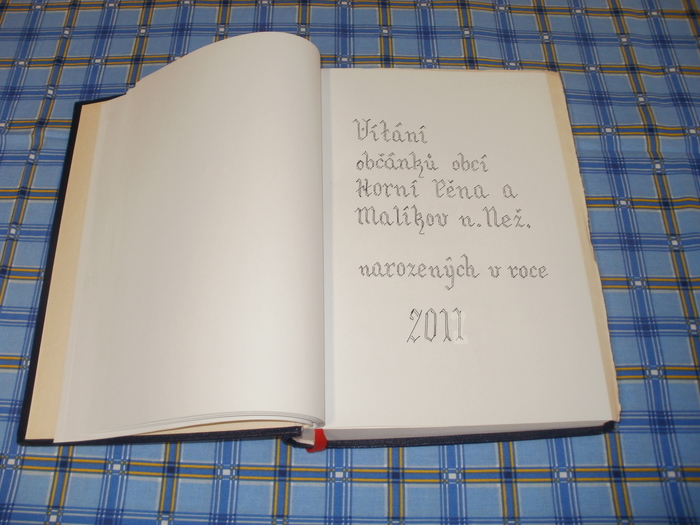 Vítání
občánků obcí
Horní Pěna a
Malíkov n.Než.
narozených v roce
2011